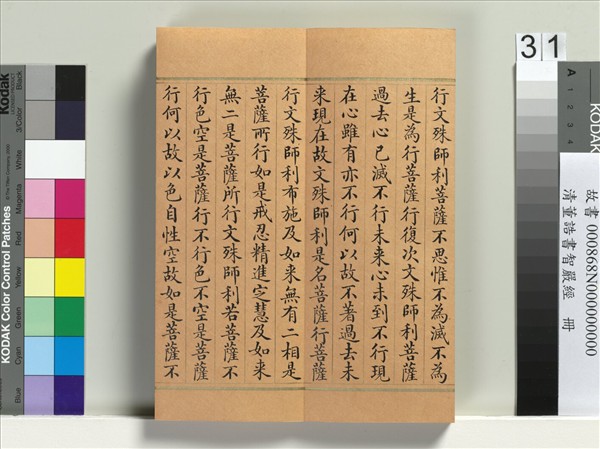 行文殊師利菩薩不思惟不為滅不為
生是為行菩薩行復次文殊師利菩薩
過去心已滅不行未来心未到不行現
在心雖有亦不行何以故不著過去未
来現在故文殊師利是名菩薩行菩薩
行文殊師利布施及如来無有二相是
菩薩所行如是戒忍精進定慧及如来
無二是菩薩所行文殊師利若菩薩不
行色空是菩薩行不行色不空是菩薩
行何以故以色自性空故如是菩薩不
31
故書 000868N000000000
清董誥書智嚴經 冊
Kodak
KODAK Color Control Patches
Blue
Cyan
Green
Yellow
Red
Magenta
White
3/Color
Black
A
1
2
3
4
KODAK